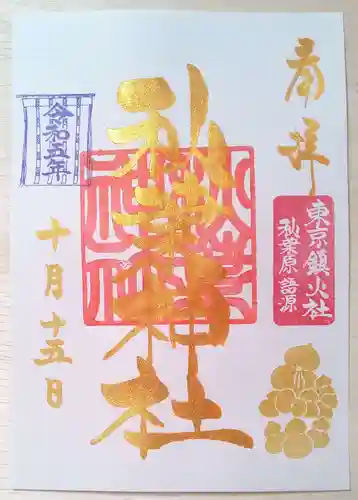 奉拝
東京鎮火社
秋葉原語源
秋葉神社
令和五年
十月十五日